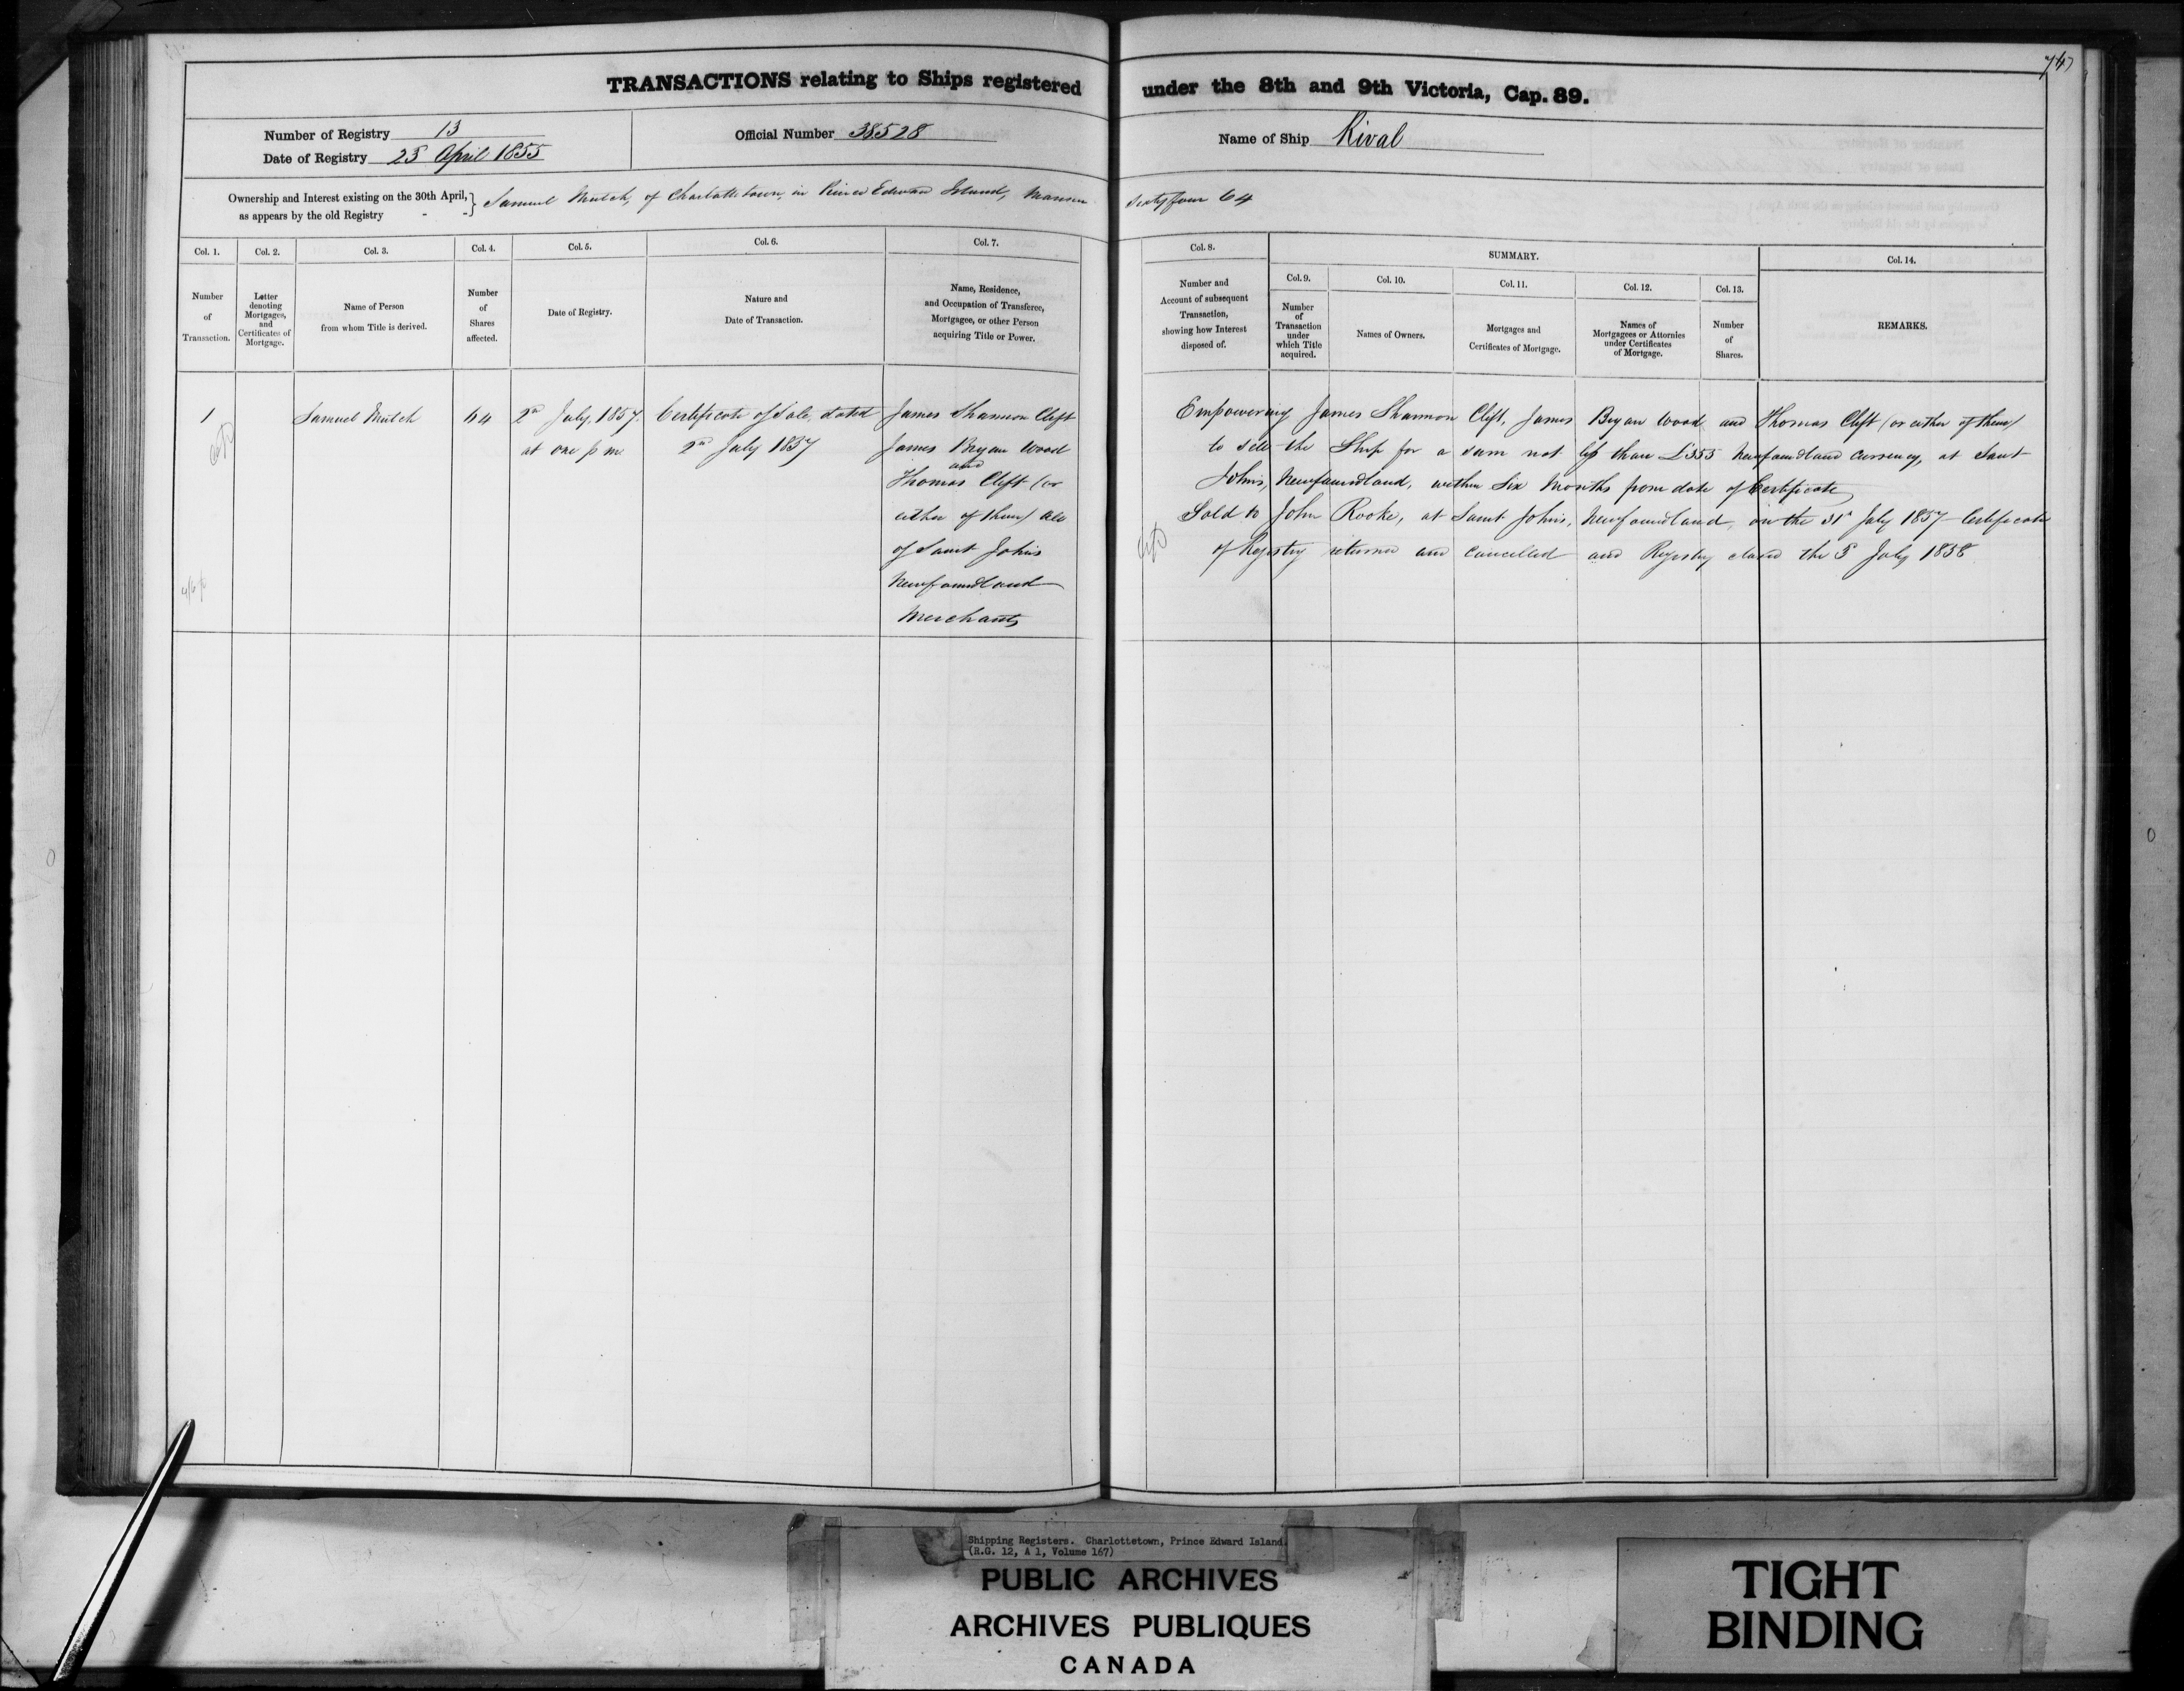 747
TRANSACTIONS relating to Ships registered under the 8th and 9th Victoria, Cap. 89.
Number of Registry 13
Date of Registry 25 April 1855
Official Number 38528
Name of Ship Rival
Ownership and Interest existing on the 30th April, as appears by the old Registry - - } Samuel Mutch, of Charlottetown, in Prince Edward Island, sixty four 64
Col. 1.
Number of Transaction.
Col. 2.
Letter denoting Mortgages, and Certificates of Mortgage.
Col. 3.
Name of Person from whom Title is derived.
Col. 4.
Number of Shares affected.
Col. 5.
Date of Registry.
Col. 6.
Nature and Date of Transaction.
Col. 7.
Name, Residence, and Occupation of Transferee, Mortgagee, or other Person acquiring Title or Power.
Col. 8.
Number and Account of subsequent Transaction, showing how Interest disposed of.
SUMMARY.
Col. 9.
Number of Transaction under which Title acquired.
Col. 10.
Names of Owners.
Col. 11.
Mortgages and Certificates of Mortgage.
Col. 12.
Names of Mortgagees or Attornies under Certificates of Mortgage.
Col. 13.
Number of Shares.
Col. 14.
REMARKS.
1
Samuel Mutch
64
2nd July, 1857.
at one p m
Certificate of Sale, dated
2nd July 1857
James Shannon Clift
James Bryan Wood
and
Thomas Clift (or
either of them) all
of Saint Johns
Newfoundland
Merchants
Empowering James Shannon Clift, James Bryan Wood and Thomas Clift (or either of them)
to sell the Ship for a sum not less than £355 Newfoundland Currency, at Saint
Johns, Newfoundland, within Six Months from date of Certificate
Sold to John Rooke, at Saint Johns, Newfoundland, on the 31st July 1857 Certificate
of Registry returned and cancelled and Registry closed the 5 July 1858
Shipping Registers. Charlottetown, Prince Edward Island.
(R.G. 12, A 1, Volume 167)
PUBLIC ARCHIVES
ARCHIVES PUBLIQUES
CANADA
TIGHT
BINDING